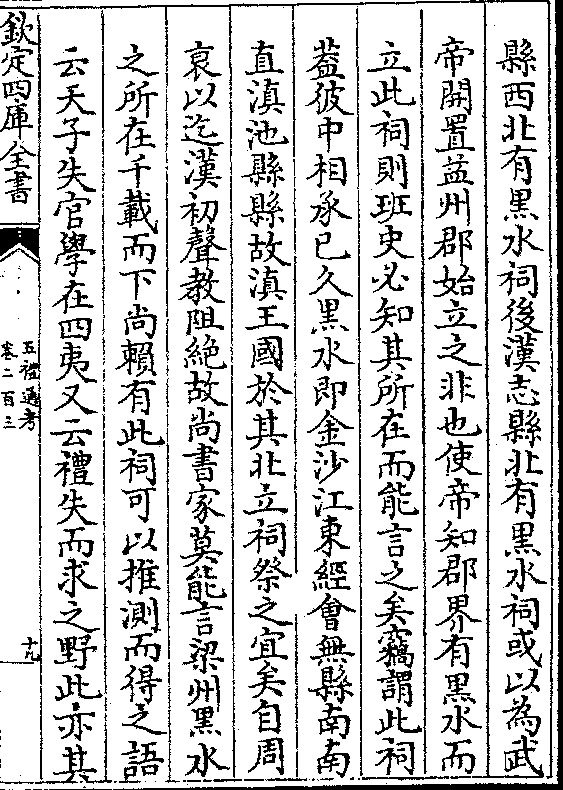 縣西北有黒水祠後漢志縣北有黒水祠或以為武
帝開置益州郡始立之非也使帝知郡界有黒水而
立此祠則班史必知其所在而能言之矣竊謂此祠
葢彼中相承已久黒水即金沙江東經㑹無縣南南
直滇池縣縣故滇王國於其北立祠祭之宜矣自周
衰以迄漢初聲教阻絶故尚書家莫能言梁州黒水
之所在千載而下尚賴有此祠可以推測而得之語
云天子失官學在四夷又云禮失而求之野此亦其
欽定四庫全書
五禮通考
卷二百三
十九